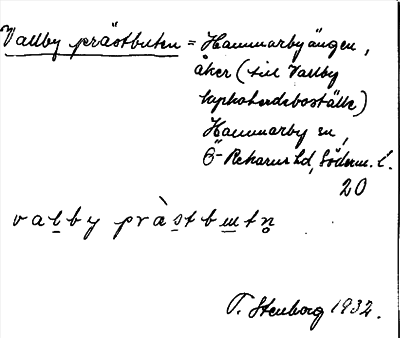 Vallby prästbiten = Hammarbyängen,
åker (till Vallby
kyrkoherdeboställe)
Hammarby sn,
Ö-Rekarne hd, Söderm. l.
20
valby präst
T. Stenborg 1932.